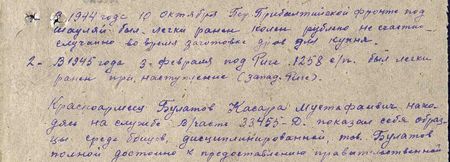 × В 1944 годе 10 октября Пер. Прибалтийской фронте под
Шауляй был легки ранен колен рублено не счастно-
случано во время заготовке дров для кухня.
2 - В 1945 года 3. февраля под Риге 1258 с/п. был легки
ранен при наступление (запад. Риге).
Красноармеец Булатов Касара Мустафаевич нахо-
дясь на службе В части 33455-Д. показал себя образ-
цы среде бойцов, дисциплинированной, тов. Булатов
полной достоино к предоставлению правительственной